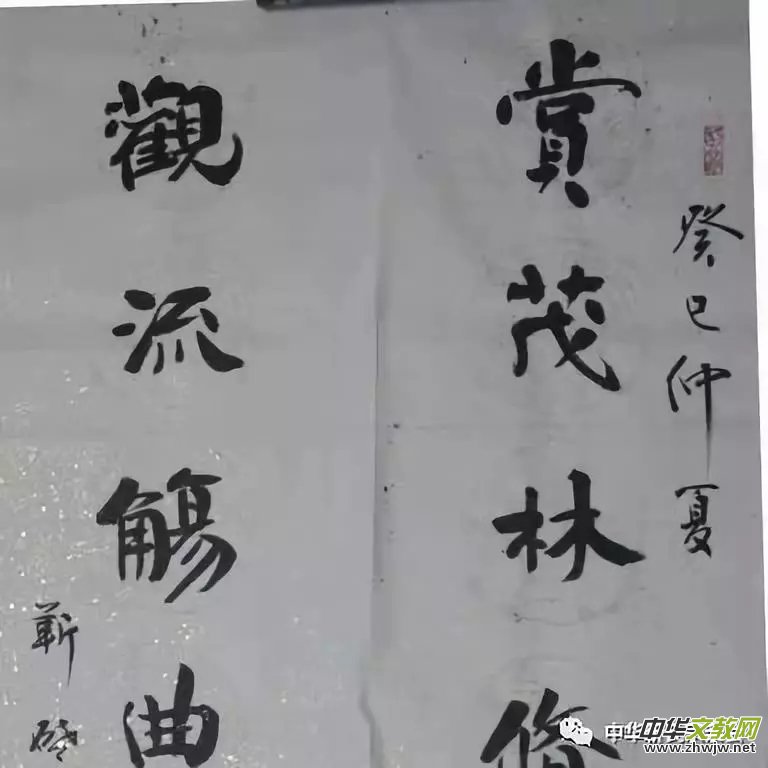 癸巳仲夏
賞茂林修
觀流觴曲
靳
中华文教网
www.zhwjw.net
中华